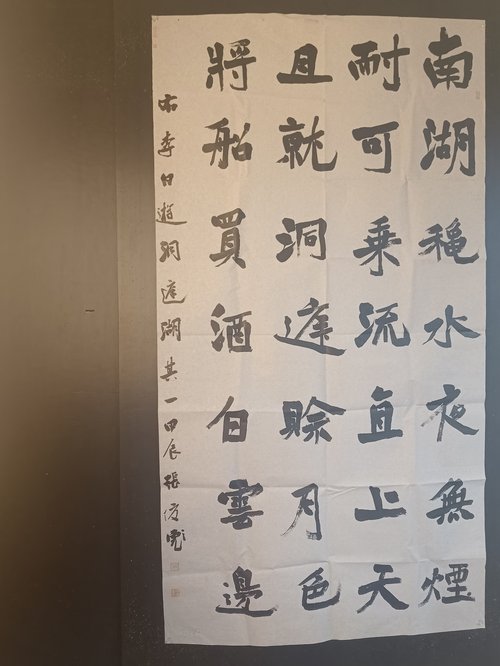 南湖穐水夜無煙
耐可乗流直上天
且就洞庭賖月色
將船買酒白雲邊
右李白遊洞庭湖其一甲辰張